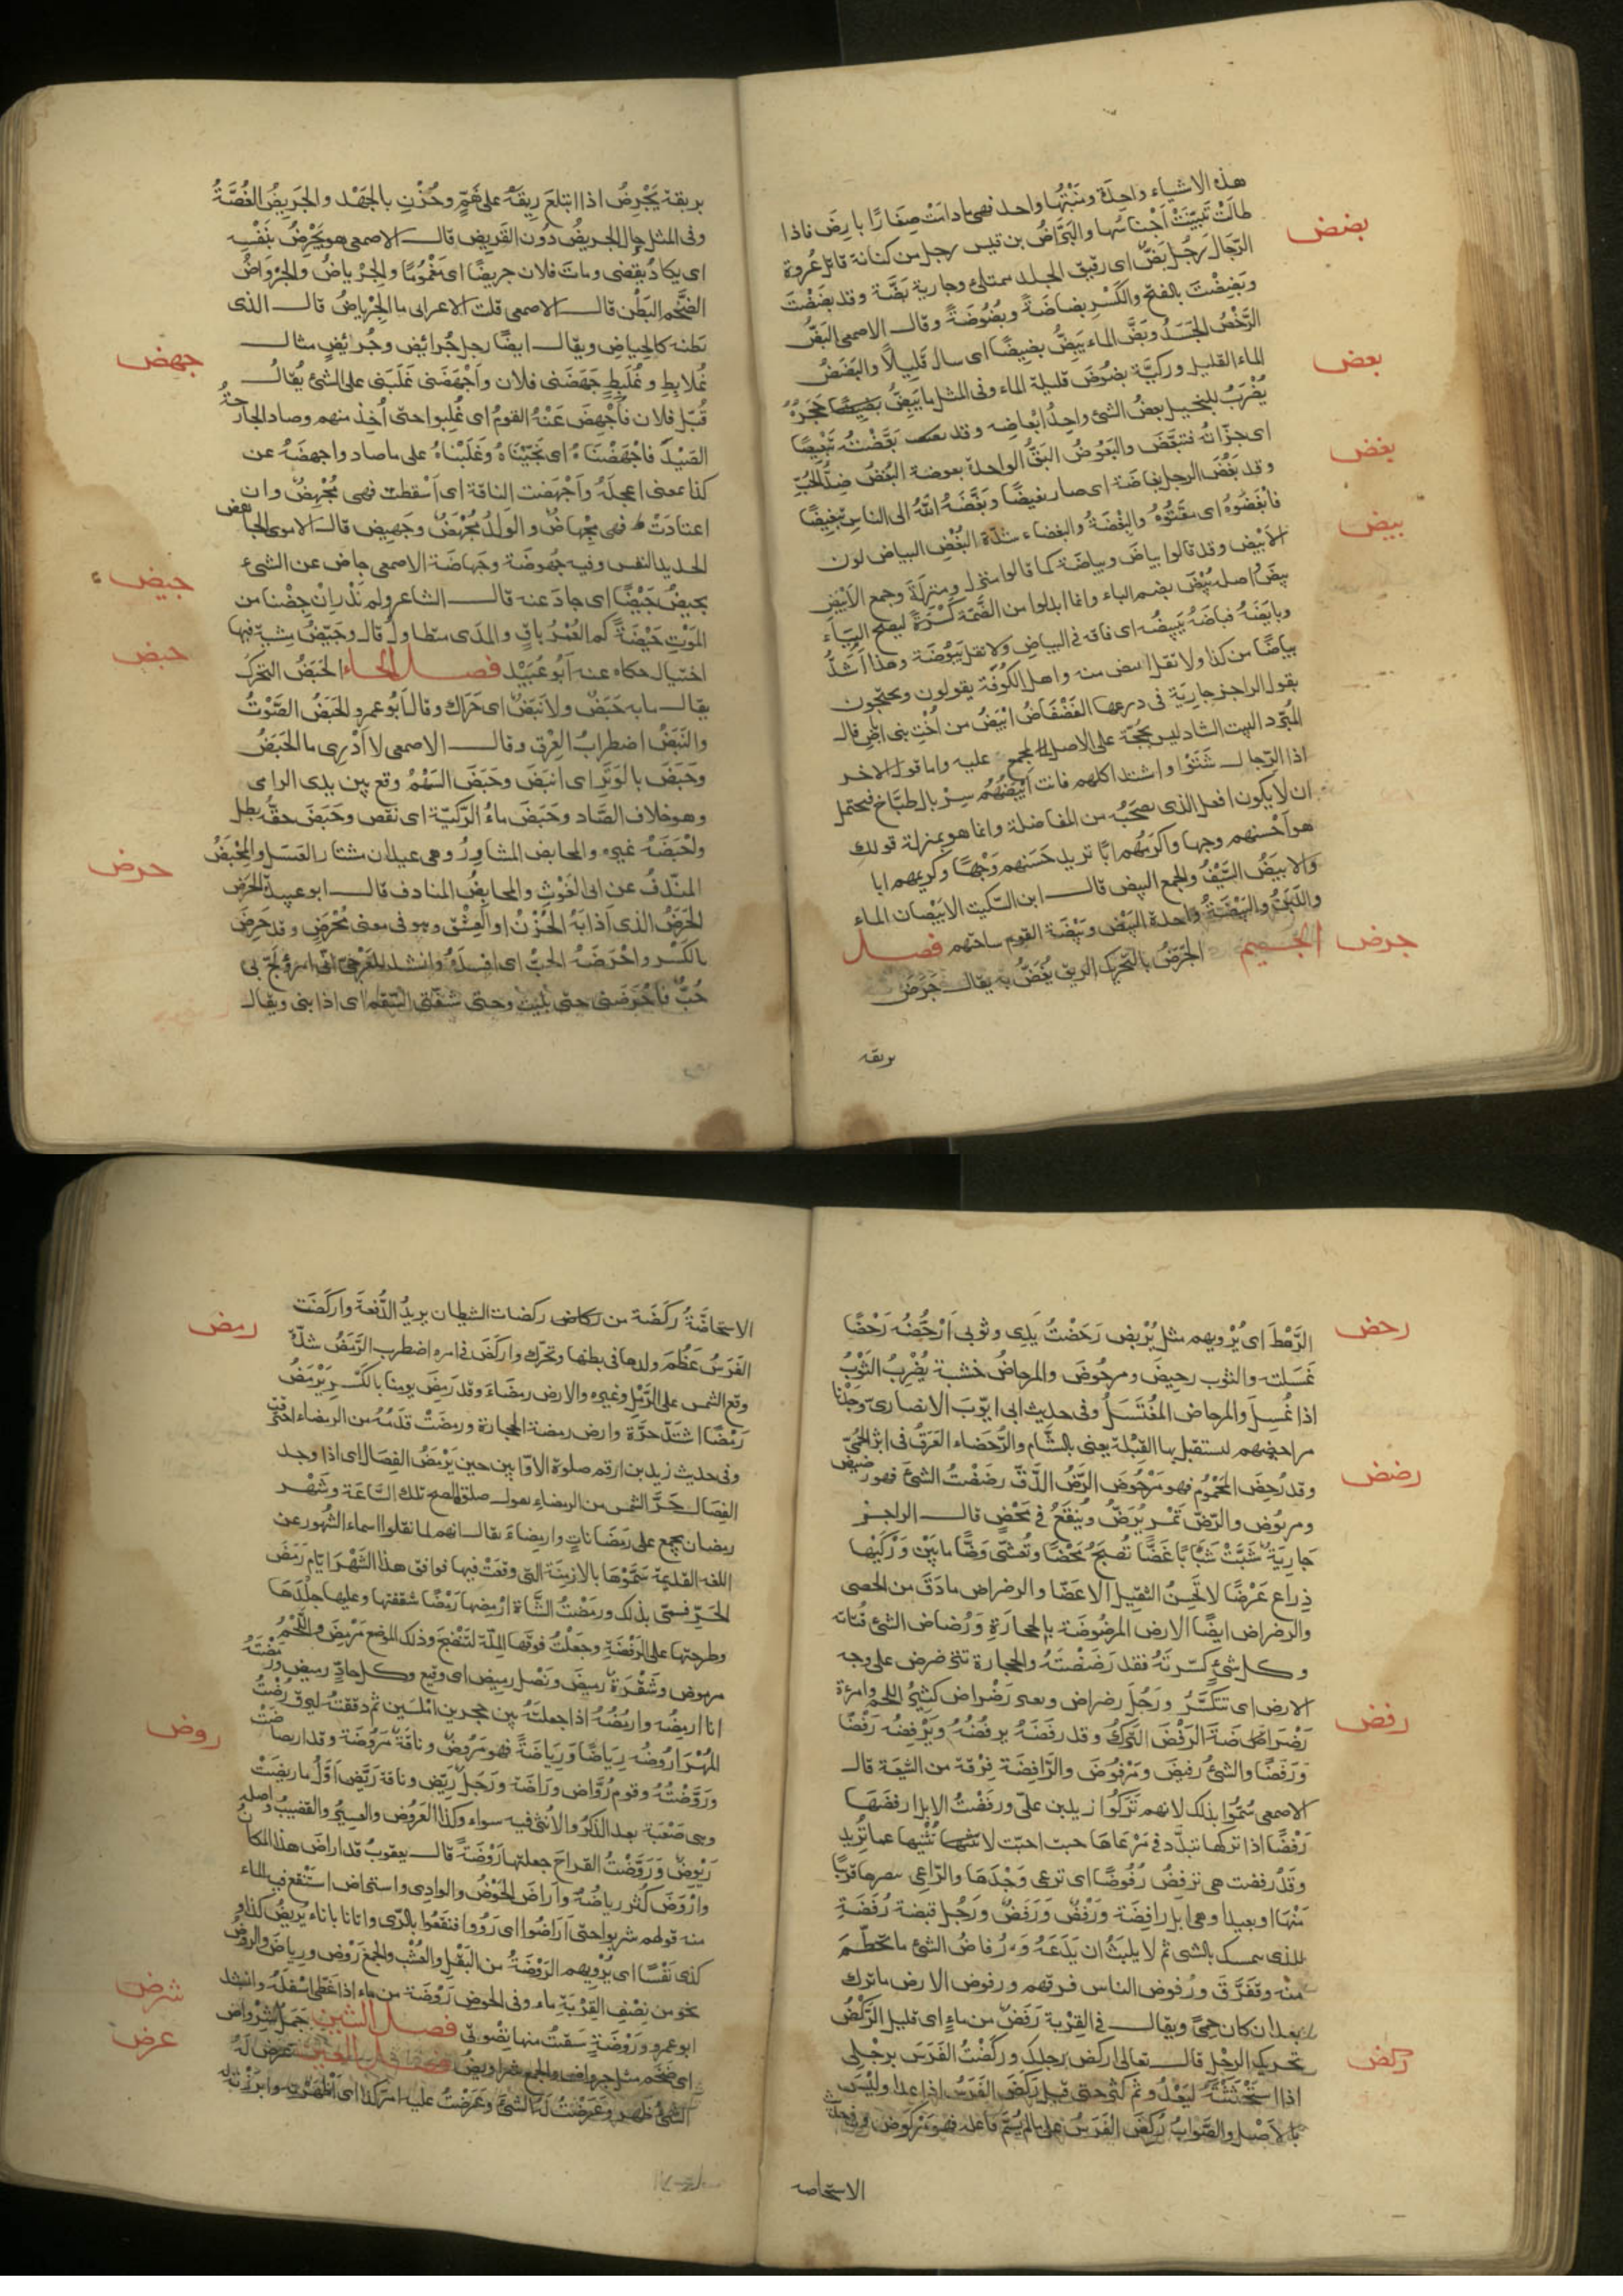 هذه الاشياء واحدة ومنبتها واحد فهى ما دامت صغارًا بارض فاذا
طالت تبيّنت اجناسها والبَرّاض بن قيس رجل من كنانة قاتل عُروة
بضض
الرّحّال رَجُل بَضّ اى رقيق الجلد ممتلئ وجارية بَضّة وقد بَضَضْتَ
وبَضِضْتَ بالفتح والكَسْر بضاضَةً وبُضُوضَةً وقال الاصمعى البَضُّ
الرَّخْصُ الجَسَدُ وبَضَّ الماء يَبِضُّ بضِيضًا اى سال قَلِيلًا والبَضَضُ
الماء القليل وركيّة بضُوض قليلة الماء وفى المثل ما يَبِضُّ حَجَرُهُ
بعض
يُضْرَبُ للبخيل بعضُ الشئ واحِدُ ابْعاضِه وقد بَعَّضْتُه تَبْعِيضًا
اى جزّأته فتبعّضَ والبَعُوضُ البَقُّ الواحدة بعوضة البُغْضُ ضِدُّ الحُبِّ
بغض
وقد بَغُضَ الرجل بغاضَة اى صار بغيضًا وبَغَّضَهُ اللّهُ الى الناس تبغيضًا
فابْغَضُوهُ اى مقَتُوهُ والبِغْضَةُ والبغضاء شدّة البُغْضِ البياض لون
بيض
الابْيض وقد قالوا بياض وبياضَة كما قالوا منزل ومنزلَة وجمع الابْيَضِ
بِيضٌ اصله بُيْضٌ بضم الباء وانما ابدلوا من الضَّمّة كَسْرَةً ليصحّ اليَاء
وبايَضَهُ فباضَهُ يَبِيضُه اى فاقه فى البياض ولا تقل يَبُوضُه وهذا اَشَدُّ
بياضًا من كذا ولا تقل ابيض منه واهل الكُوفَة يقولون ويحتجّون
بقول الراجز جارِيَة فى درعها الفَضْفَاضُ ابْيَضُ من اُخْتِ بنى اباض قال
المبُرّد البيت الشاذ ليس بحُجّة على الاصل المجمع عليه واما قول الاخر
اذا الرّجال شَتَوْا واشتد اكلهم فانت اَبْيَضُهُم سِرْبالَ طبّاخ فيحتمل
ان لا يكون افعل الذى تصحَبُه من المفاضلة وانما هو بمنزلة قولك
هو اَحْسنهم وجها واكرَمُهُم ابًا تريد حَسَنهم وَجْهًا وكريمهم ابا
والابيَضُ السَّيْفُ والجمع البيض قال ابن السّكيت الابيْضان الماء
واللّبَنُ والبَيْضَةُ واحدة البَيْض وبَيْضَة القوم ساحتهم فصل
جرض
الجيم الجَرَضُ بالتّحريك الريق يُغَصُّ به يقال جَرَضَ
بريقه
بريقه يَجْرِضُ اذا ابتلعَ رِيقَهُ على هَمٍّ وحُزْنٍ بالجَهْد والجَرِيضُ الغُصَّةُ
وفى المثل حال الجريضُ دُون القَرِيض قال الاصمعى هو يَجْرِضُ بنَفْسِه
اى يكادُ يقضى وماتَ فلان جريضًا اى مَغْمُومًا والجِرْياضُ والجِرْوَاضُ
الضَّخْم البَطْن قال الاصمعى قلت لاعرابى ما الجِرْياضُ قال الذى
بَطنه كالحِياض ويقال ايضًا رجل جُرائِض وجُرئِضٌ مثال
جهض
عُلابِطٍ وعُلَبِطٍ جَهَضَنى فلان واَجْهَضَنى غَلَبَنى على الشئ يُقالُ
قُتِلَ فلان فاُجْهِضَ عَنْهُ القومُ اى غُلِبوا حتى اُخِذَ منهم وصاد الجارحة
الصَيْدَ فاجْهَضْنَاهُ اى نَحّيْنَاهُ وغَلَبْناهُ على ما صاد واجهضَهُ عن
كذا بمعنى اعجلَهُ واَجْهَضت الناقة اى اَسْقطت فهى مُجْهِضٌ وان
اعتادَتْ فهى مِجْهاضٌ والوَلدُ مُجْهَضٌ وجَهِيض قال الاموى الجاهض
الحديد النفس وفيه جُهوضَة وجَهاضَة الاصمعى جاض عن الشئ
جيض
يجيضُ جَيْضًا اى حادَ عنه قال الشاعر ولم نَدْرِ اِن جِضْنا من
المَوْت جَيْضَةً كم العُمْرُ باقٍ والمَدَى متطاولُ قال وجَيَّضٌ مِشيَة فيها
حبض
اختيال حكاه عنه اَبُو عُبَيْد فصل الحاء الحَبَضُ التحرّكُ
يقال ما به حَبَضٌ ولا نَبَضٌ اى حَرَاك وقال اَبُو عمرو الحَبَضُ الصَّوْتُ
والنَّبَضُ اضطرابُ العِرْق وقال الاصمعى لا اَدْرِى ما الحَبَضُ
وحَبَضَ بالوَتَر اى انبَضَ وحَبَضَ السَهْمُ وقع بين يدى الرامى
وهو خلاف الصّادر وحَبَضَ ماءُ الرّكيّة اى نقص وحَبَضَ حقّه بطل
واحْبَضَهُ غيره والمحابض المشاوِرُ وهى عيدان تشتار العَسَل والمِحْبَضُ
حرض
المنْدفُ عن ابى الغَوْثِ والمحابِضُ المنادف قال ابو عبيدة الحَرَض
الحَرَضُ الذى اَذابَهُ الحُزْنُ او العِشْق وهو فى معنى مُحْرَضٍ وقد حَرِضَ
بالكَسْر واَحْرَضَهُ الحبّ اى افسَدَهُ وانشد للعَرْجىّ انّى امرؤ لَجّ بى
حُبّ فاَحْرَضَنى حتى بَلِيت وحتى شفّنى السّقم اى اذابنى ويقال
رحض
الرَّهْطَ اى يُرْويهم مثل يُرْبِض رَحَضْتُ يَدِى وثوبى اَرْحَضُهُ رَحْضًا
غَسَلت والثوب رحِيض ومرحُوضٌ والمِرحاضُ خشبة يُضْرَبُ الثَوْبُ
اذا غُسِلَ والمرحاض المُغْتَسَلُ وفى حديث ابى ايّوبَ الانصارىّ وَجَدْنا
مراحيضهم استقبل بها القِبْلَة يعنى بالشّام والرُّحَضاء العَرَقُ فى اثر الحُمّى
رضض
وقد رُحِضَ المحْمُوم فهو مَرْحُوض الرَّضُّ الدَّقّ رضَضْتُ الشئَ فهو رضيض
ومرضُوض والرّضّ تَمْر يُرَضّ ويُنقَعُ فى مَحْضٍ قال الراجز
جَارِيَة شَبَّتْ شَبَابًا غَضًّا تُصْبَحُ مَحْضًا وتُعَشّى رَضًّا ما بَيْنَ وَرْكَيْها
ذِراع عَرْضًا لا تُحْسِنُ التقبيل الا عَضّا والرضراض ما دَقّ من الحصى
والرضراض ايضًا الارض المرضُوضَة بالحجارَةِ ورُضاض الشئ فُتاته
وكل شئٍ كسّرتَهُ فقد رَضَضْتَهُ والحجارة تترضرض على وجه
الارض اى تتكسَّرُ ورَجُل رضراض وبعير رَضْراض كثيرُ اللحم وامرءة
رفض
رَضْراضَة الرَفْضُ التَركُ وقد رفَضَهُ يرفُضُهُ ويَرْفِضُه رَفْضًا
ورَفَضًا والشئُ رفيض ومَرْفُوضٌ والرّافِضَة فِرْقة من الشيعَة قال
الاصمعى سُمُّوا بذلك لانهم تَرَكُوا زيد بن علىّ ورفَضْتُ الابِلَ ارفِضَهَا
رَفْضًا اذا تركها تبدّد فى مَرْعَاهَا حيث احبّت لا تَثْنيها عما تُريد
وقَدْ رفضت هى ترفِضُ رُفُوضًا اى ترعى وَحْدَهَا والرّاعى يبصرها قريبًا
مِنْهَا او بعيدا وهى ابل رافِضَة ورَفْضٌ ورَفَضٌ ورَجُل قبضة رُفَضَة
للذى يتمسك بالشئ ثم لا يلبَثُ ان يَدَعَهُ ورُفاضُ الشئ ما تحطّمَ
مِنْه وتَفَرَّقَ ورُفوض الناس فرقهم ورفوض الارض ما ترك
بعد ان كان حِمًى ويقال فى القِرْبة رَفَضٌ من ماءٍ اى قليل الرَّكْضُ
ركض
تحريك الرجْلِ قال تعالى اركض برجلك وركَضْتُ الفَرَسَ برِجْلى
اذا اسْتَحْثَثْتَه ليَعْدُوَ ثم كثر حتى قيل رَكَضَ الفَرَسُ اذا عدا ولَيْسَ
بالاَصْل والصَّوابُ رُكِضَ الفَرَسُ على ما لم يُسَمَّ فاعله فهو مَرْكُوض
الاستحاضه
رمض
الاستحاضَةُ ركَضَة من ركضات الشيطان يريدُ الدُّفعَةَ واركَضَت
الفَرَسُ عَظُمَ ولدها فى بطنها وتحرّك واركَضَ فى امره اضطرب الرَّمَضُ شدّة
وقع الشمس على الرَّمْل وغيره والارض رمضَاءُ وقد رَمِضَ يومنا بالكَسْر يَرْمَضُ
رَمَضًا اشتدّ حرّهُ وارض رمضة الحجارة ورمِضَتْ قدَمُه من الرمضاء احترقت
وفى حديث زيد بن ارقم صلوة الاوّابين حين يَرْمَضُ الفِصَال اى اذا وجد
الفِصَال حَرَّ الشمس من الرمضاء يقول صلاة الضحى تلك السَّاعَة وشَهْر
رمضان يجمع على رمَضَانات وارمِضاءَ يقال انهم لما نقلوا اسماء الشُهور عن
اللغه القديمَة سَمَّوْهَا بالازمِنَة التى وقَعَتْ فيها فوافق هذا الشَهْر ايّام رَمَضَ
الحَرّ فسمّى بذلك ورمَضْتُ الشَّاةَ ارمِضها رَمْضًا شققتها وعليها جِلْدُهَا
وطرحتها على الرَضْفَةِ وجعَلْتُ فوقَها المَلّة لتَنْضَجَ وذلك الموضع مَرْمِض واللّحْمُ
مرموض وشَفْرَة رميضٌ ونَصْل رميض اى وقيع وكلّ حادّ رميض ورمَضْتُهُ
انا ارمِضُه وارمُضُهُ اذا جعلتَهُ بين حجرين امْلسَين ثم دققتهُ ليرقّ رُضْتُ
روض
المُهْرَ اَرُوضُه رِيَاضًا ورِياضَةً فهو مَرُوضٌ وناقَة مَرُوضَة وقد ارتاضَت
ورَوَّضْتُه وقوم رُوَّاض ورَاضَة ورَجُل رَيِّض وناقة رَيِّض اوّلُ ما رِيضَتْ
وهى صَعْبَة بعد الذكَرُ والاُنثى فيه سواء وكذا العَرُوض والعسِيرُ والقضيبُ واصله
رَيْوِضٌ ورَوّضْتُ القراحَ جعلتها رَوْضَةً قال يعقوبُ قد اراضَ هذا المكانُ
واَرْوَضَ كُثر رياضُهُ واَراضَ الحَوْضُ والوادِى واستراض استَنْقع فيه الماء
منه قولهم شربوا حتى اَرَاضُوا اى رَوُوا فنقعُوا بالرّى واتانا باناءٍ يُرِيضُ كذا وكذا
كذى نَفْسًا اى يُرْوِيهم الرَوْضَةُ من البَقْل والعُشْب والجمع رَوْض ورياضٌ والروض
نحو من نِصْفِ القِرْبَة ماء وفى الحوض رَوْضَة من ماء اذا غطّى اسْفَلَهُ وانشد
شرض
ابو عمرو ورَوْضَةٍ سَقيْتُ منها نِضْوتى فصل الشين جَمَل شِرْواض
عرض
اى ضَخم مثل جرواض والجمع شراويضُ فصل العين عَرَضَ لَهُ
الشئُ ظهر وعَرَضْتُ لَهُ الشئَ وعَرَضْتُ عليه امر كذا اى اَظهَرْته وابرزته